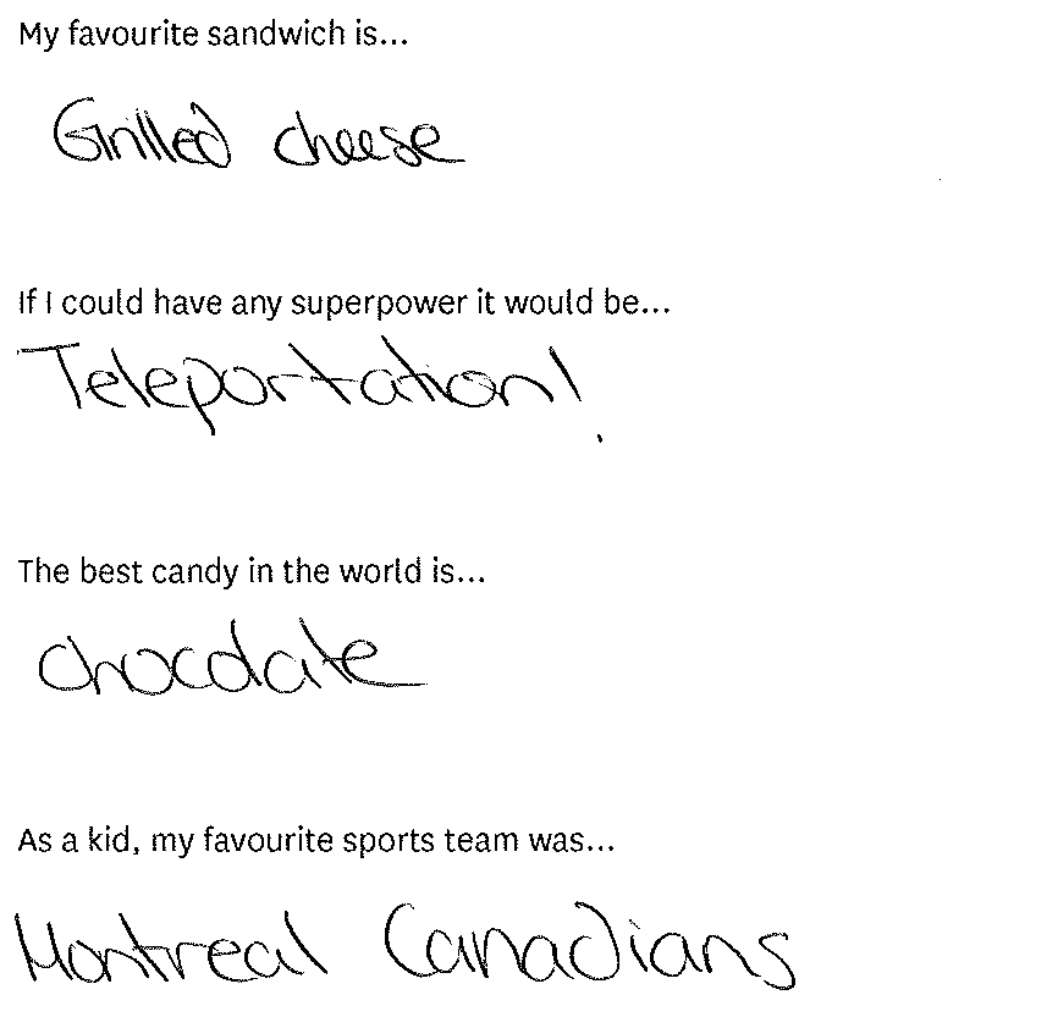 My favourite sandwich is...
Grilled cheese
If I could have any superpower it would be...
Teleportation!
The best candy in the world is...
chocolate
As a kid, my favourite sports team was...
Montreal Canadians